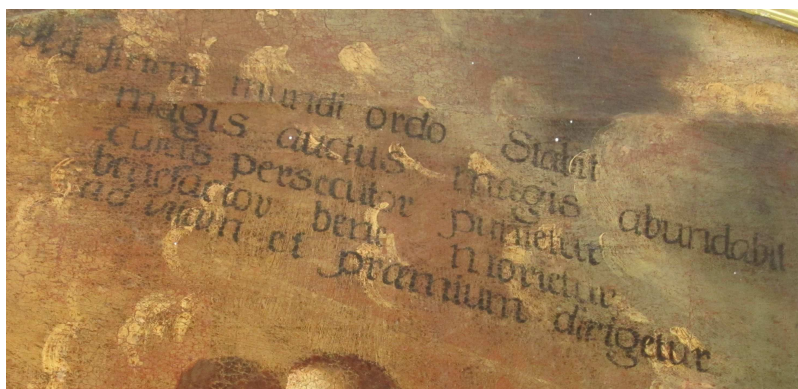 Ad finem mundi ordo Stabit
magis auctus magis abundabit
cuius persecutor punietur
benefactor bene morietur
ad vitam et præmium dirigetur